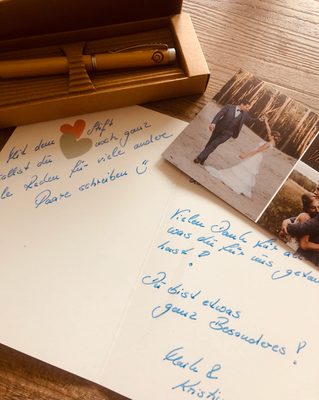 Mit dem Stift
sollst du noch ganz
le Reden für viele andere
Paare schreiben :)
Vielen Dank für all
was du für uns getan
hast!
Du bist etwas
ganz Besonderes!
&
Kristi